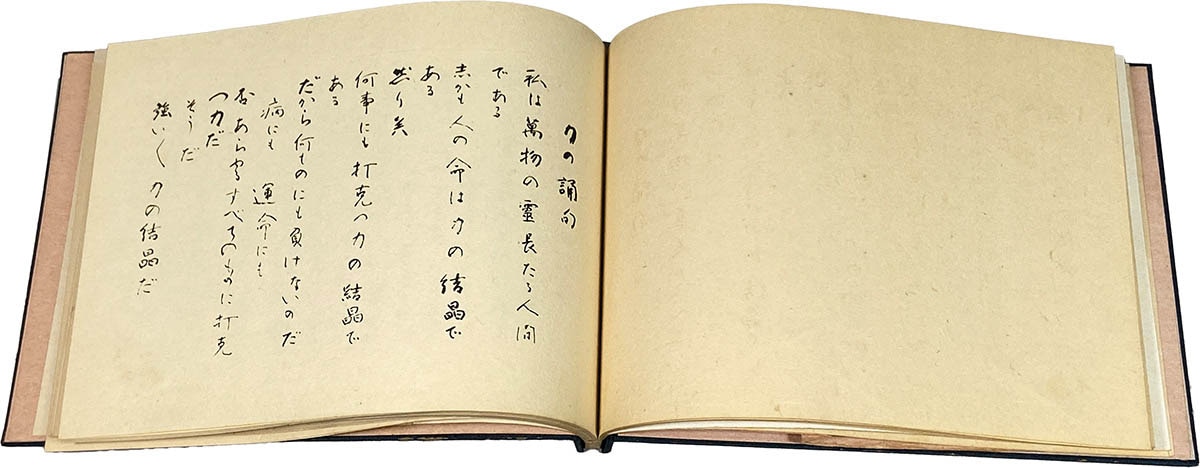 力の誦句
私は萬物の靈長たる人間
である
志かも人の命は力の結晶で
ある
然り矣
何事にも打克つ力の結晶で
ある
だから何ものにも負けないのだ
病にも 運命にも
否あらゆるすべてのものに打克
つ力だ
そうだ
強い〱力の結晶だ